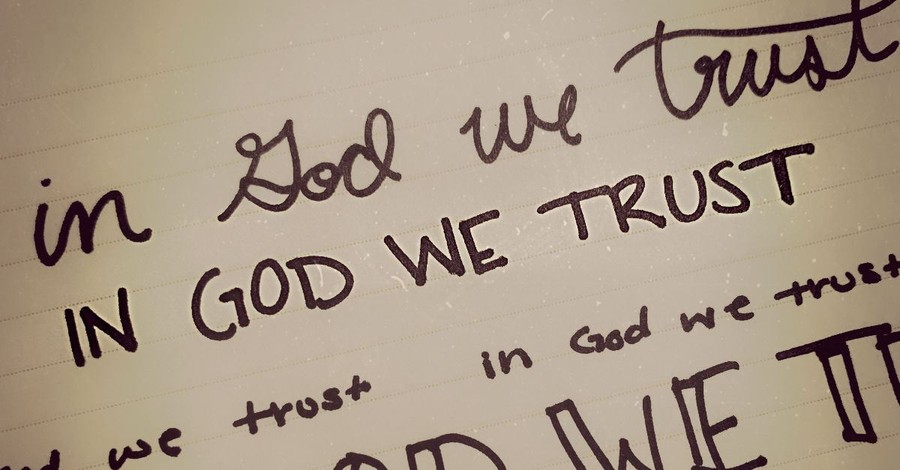 in God we trust
IN GOD WE TRUST
we trust in God we trust
WE